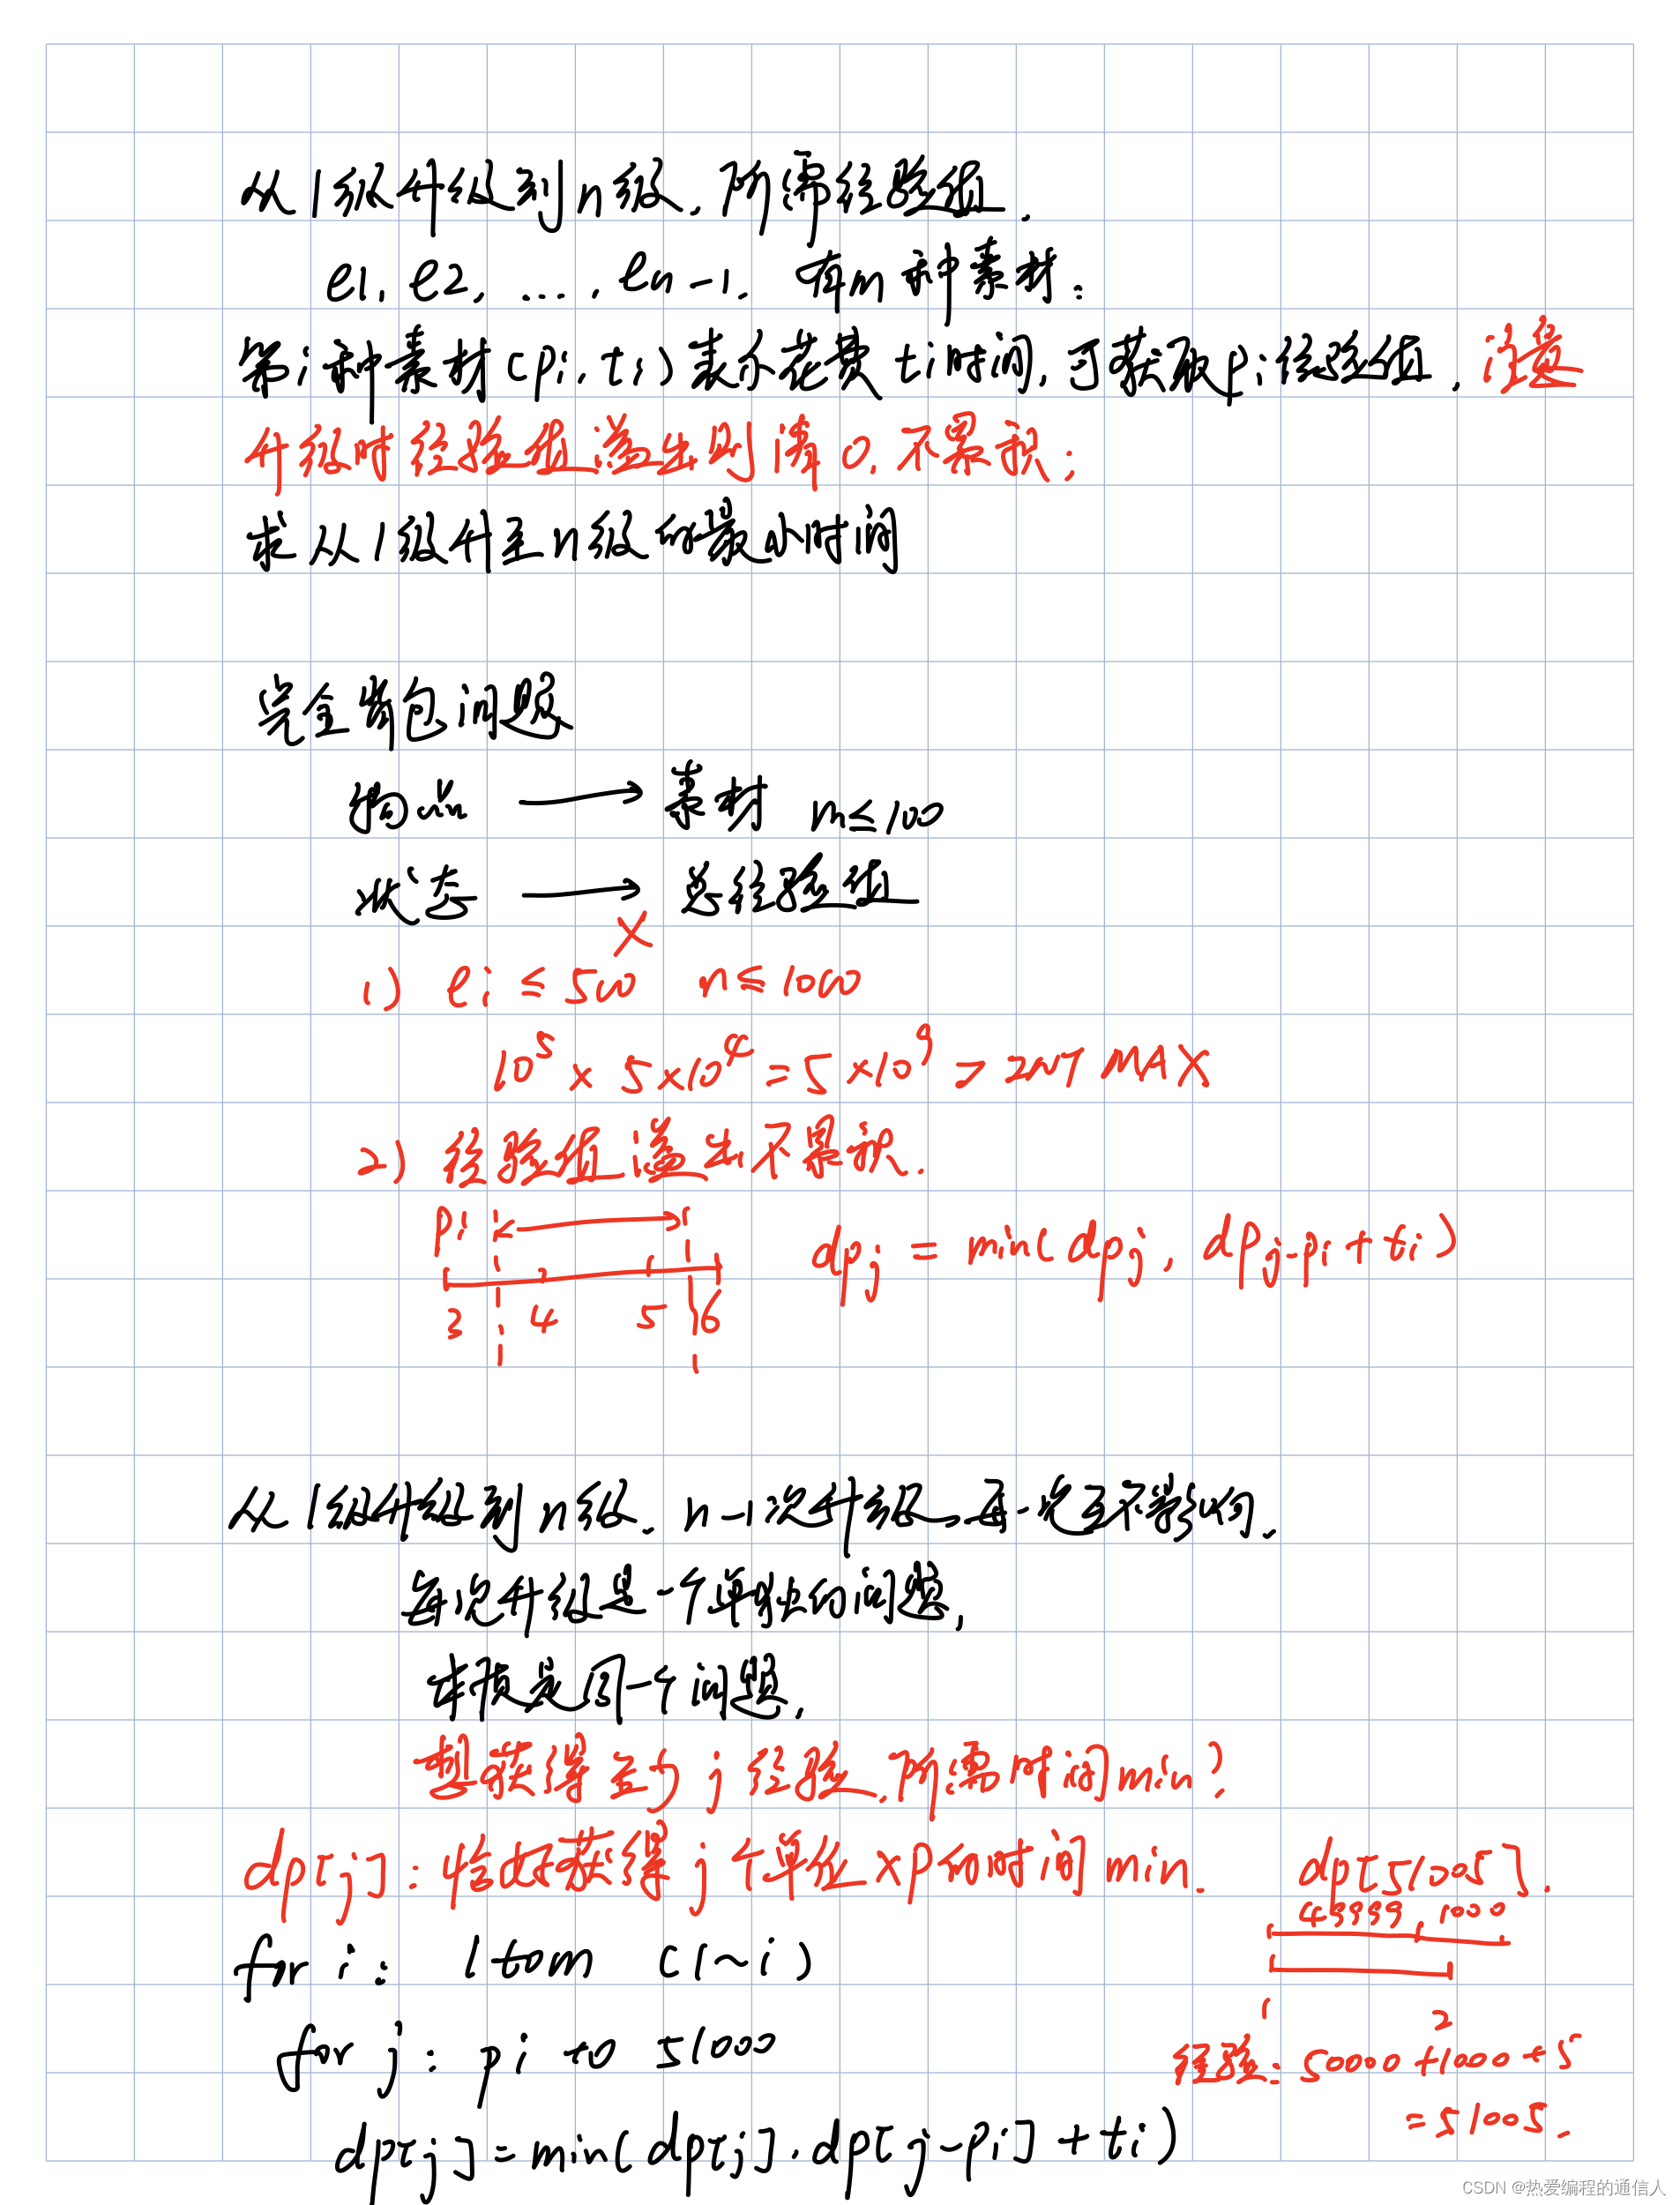 从1级升级到n级, 所需经验值.
e1, e2, ..., en-1. 有m种素材:
第i种素材(pi, ti)表示花费ti时间, 可获取pi经验值. 注意
升级时经验值溢出则清0, 不累积;
求从1级升至n级的最小时间
完全背包问题
物品 → 素材 m≤100
状态 → 总经验值
×
1) ei ≤ 500 n≤1000
10^5 × 5×10^4 = 5×10^9 > INT MAX
2) 经验值溢出, 不累积.
pi
3 4 5 6
dpj = min(dpj, dpj-pi + ti)
从1级升级到n级. n-1次升级. 每一次互不影响.
每次升级是一个单独的问题,
本质是同一个问题.
想获得至少j经验, 所需时间min?
dp[j]: 恰好获得j个单位xp的时间min.
dp[51005].
49999 1000
for i: 1 to m (1~i)
1 2
for j: pi to 51000
经验: 50000+1000+5
=51005.
dp[j]=min(dp[j], dp[j-pi]+ti)
CSDN @热爱编程的通信人